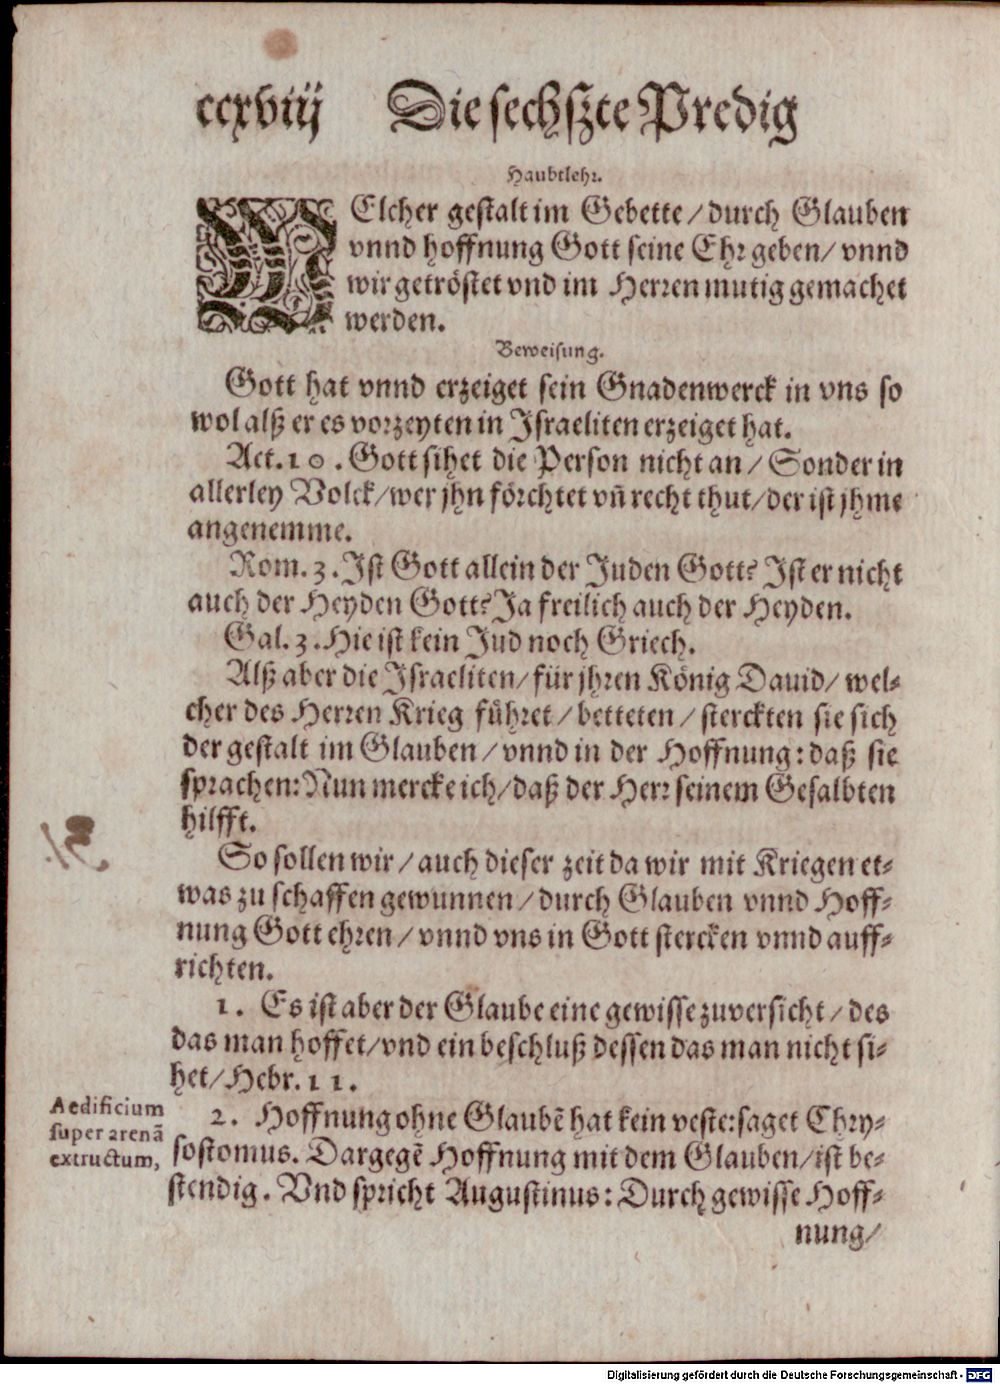 ccxviij Die sechszte Predig
Haubtlehr.
WElcher gestalt im Gebette/durch Glauben
vnnd hoffnung Gott seine Ehr geben/ vnnd
wir getröstet vnd im Herren mutig gemachet
werden.
Beweisung.
Gott hat vnnd erzeiget sein Gnadenwerck in vns so
wol alß er es vorzeyten in Israeliten erzeiget hat.
Act. 10. Gott sihet die Person nicht an/ Sonder in
allerley Volck/wer jhn förchtet vn̄ recht thut/der ist jhme
angenemme.
Rom. 3. Ist Gott allein der Juden Gott? Ist er nicht
auch der Heyden Gott? Ja freilich auch der Heyden.
Gal. 3. Hie ist kein Jud noch Griech.
Alß aber die Israeliten/ für jhren König Dauid/ wel-
cher des Herren Krieg führet/ betteten/ sterckten sie sich
der gestalt im Glauben/ vnnd in der Hoffnung: daß sie
sprachen: Nun mercke ich/daß der Herr seinem Gesalbten
hilfft.
So sollen wir/ auch dieser zeit da wir mit Kriegen et-
was zu schaffen gewunnen/ durch Glauben vnnd Hoff-
nung Gott ehren/ vnnd vns in Gott stercken vnnd auff-
richten.
1. Es ist aber der Glaube eine gewisse zuversicht/ des
das man hoffet/vnd ein beschluß dessen das man nicht si-
het/ Hebr. 11.
2. Hoffnung ohne Glaubē hat kein veste: saget Chry-
sostomus. Dargegē Hoffnung mit dem Glauben/ist be-
stendig. Vnd spricht Augustinus: Durch gewisse Hoff-
nung/
Aedificium
super arenā
extructum,
Digitalisierung gefördert durch die Deutsche Forschungsgemeinschaft - DFG